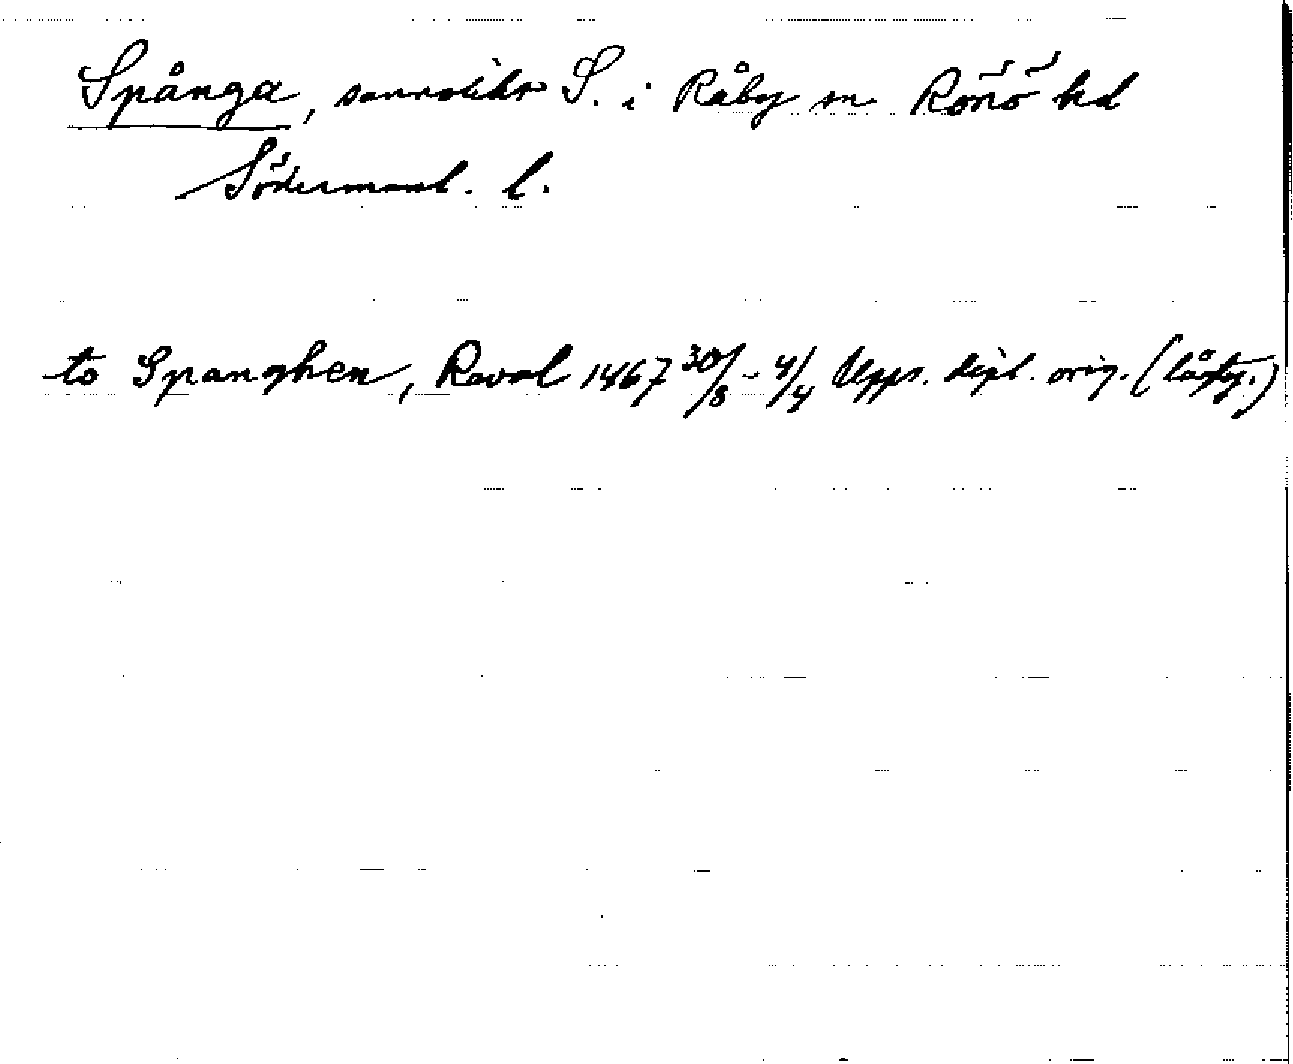 Spånga, sannolikt S. i Råby sn Rönö hd
Södermanl. l.
to Spanghen, Reval 1467 30/8 - 4/4 Upps. dipl. orig. (lågty.)